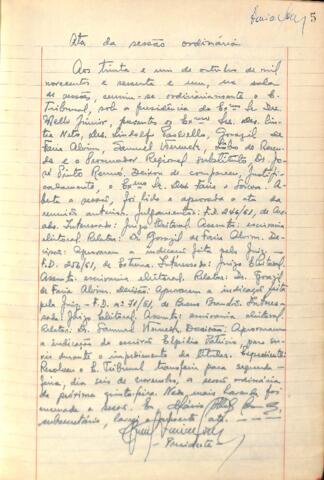 5
Ata da sessão ordinária
Aos trinta e um de outubro de mil
novecentos e sessenta e um, na sala
de sessão, reuniu-se ordinariamente o E.
Tribunal, sob a presidência do Exmo Sr. Des.
Mello Júnior, presentes os Exmos Srs. Des. Lin
Neto, Des. Lindolfo Gorazil de
Faria Alvim, Samuel Werneck,
e o Procurador Regional substituto, Dr. José
Pinto Deixou de comparecer, justifi-
cadamente, o Exmo Sr. Des. Faria e Souza. A-
berta a sessão, foi lida e aprovada a ata da
reunião anterior. Julgamentos: F.D. 246/61, de
Interessado: Juízo Eleitoral. Assunto: escrivania
eleitoral. Relator: Dr. Gorazil de Faria Alvim. De-
cisão: Aprovaram a indicação feita pelo Juiz.
F.D. 256/61, de Interessado: Juízo Eleitoral.
Assunto: escrivania eleitoral. Relator: Dr. Gorazil
de Faria Alvim. Decisão: Aprovaram a indicação feita
pelo Juiz. F.D. nº 71/61, de Bueno Brandão. Interes-
sado: Juízo Eleitoral. Assunto: escrivania eleitoral.
Relator: Dr. Samuel Werneck. Decisão: Aprovaram
a indicação do escrivão Elpídio para ser-
vir durante o impedimento do titular. Expediente:
Resolveu o E. Tribunal transferir para segunda-
feira, dia seis de novembro, a sessão ordinária
da próxima quinta-feira. Nada mais havendo, foi
encerrada a sessão. Eu,
subsecretário, lavrei a presente ata.
Presidente